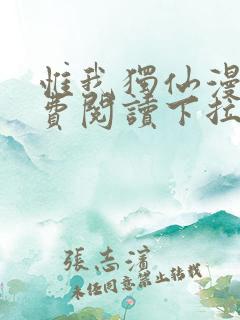 惟我獨仙漫
費閱讀下拉
張志濱
未经同意禁止转载